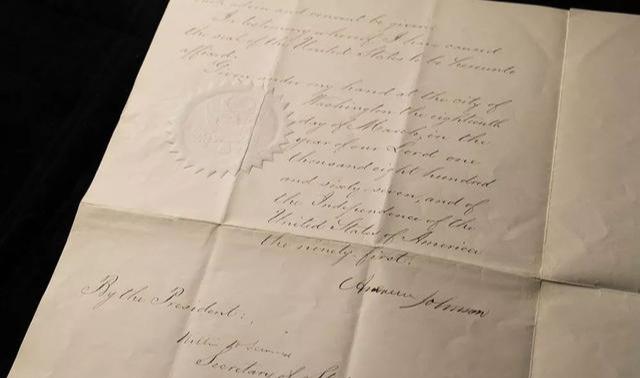 such advice and consent be given.
In testimony whereof, I have caused
the seal of the United States to be hereunto
affixed.
Given under my hand at the city of
Washington the eighteenth
day of March, in the
year of our Lord one
thousand eight hundred
and sixty-seven, and of
the Independence of the
United States of America
the ninety first.
Andrew Johnson
By the President:
Secretary of